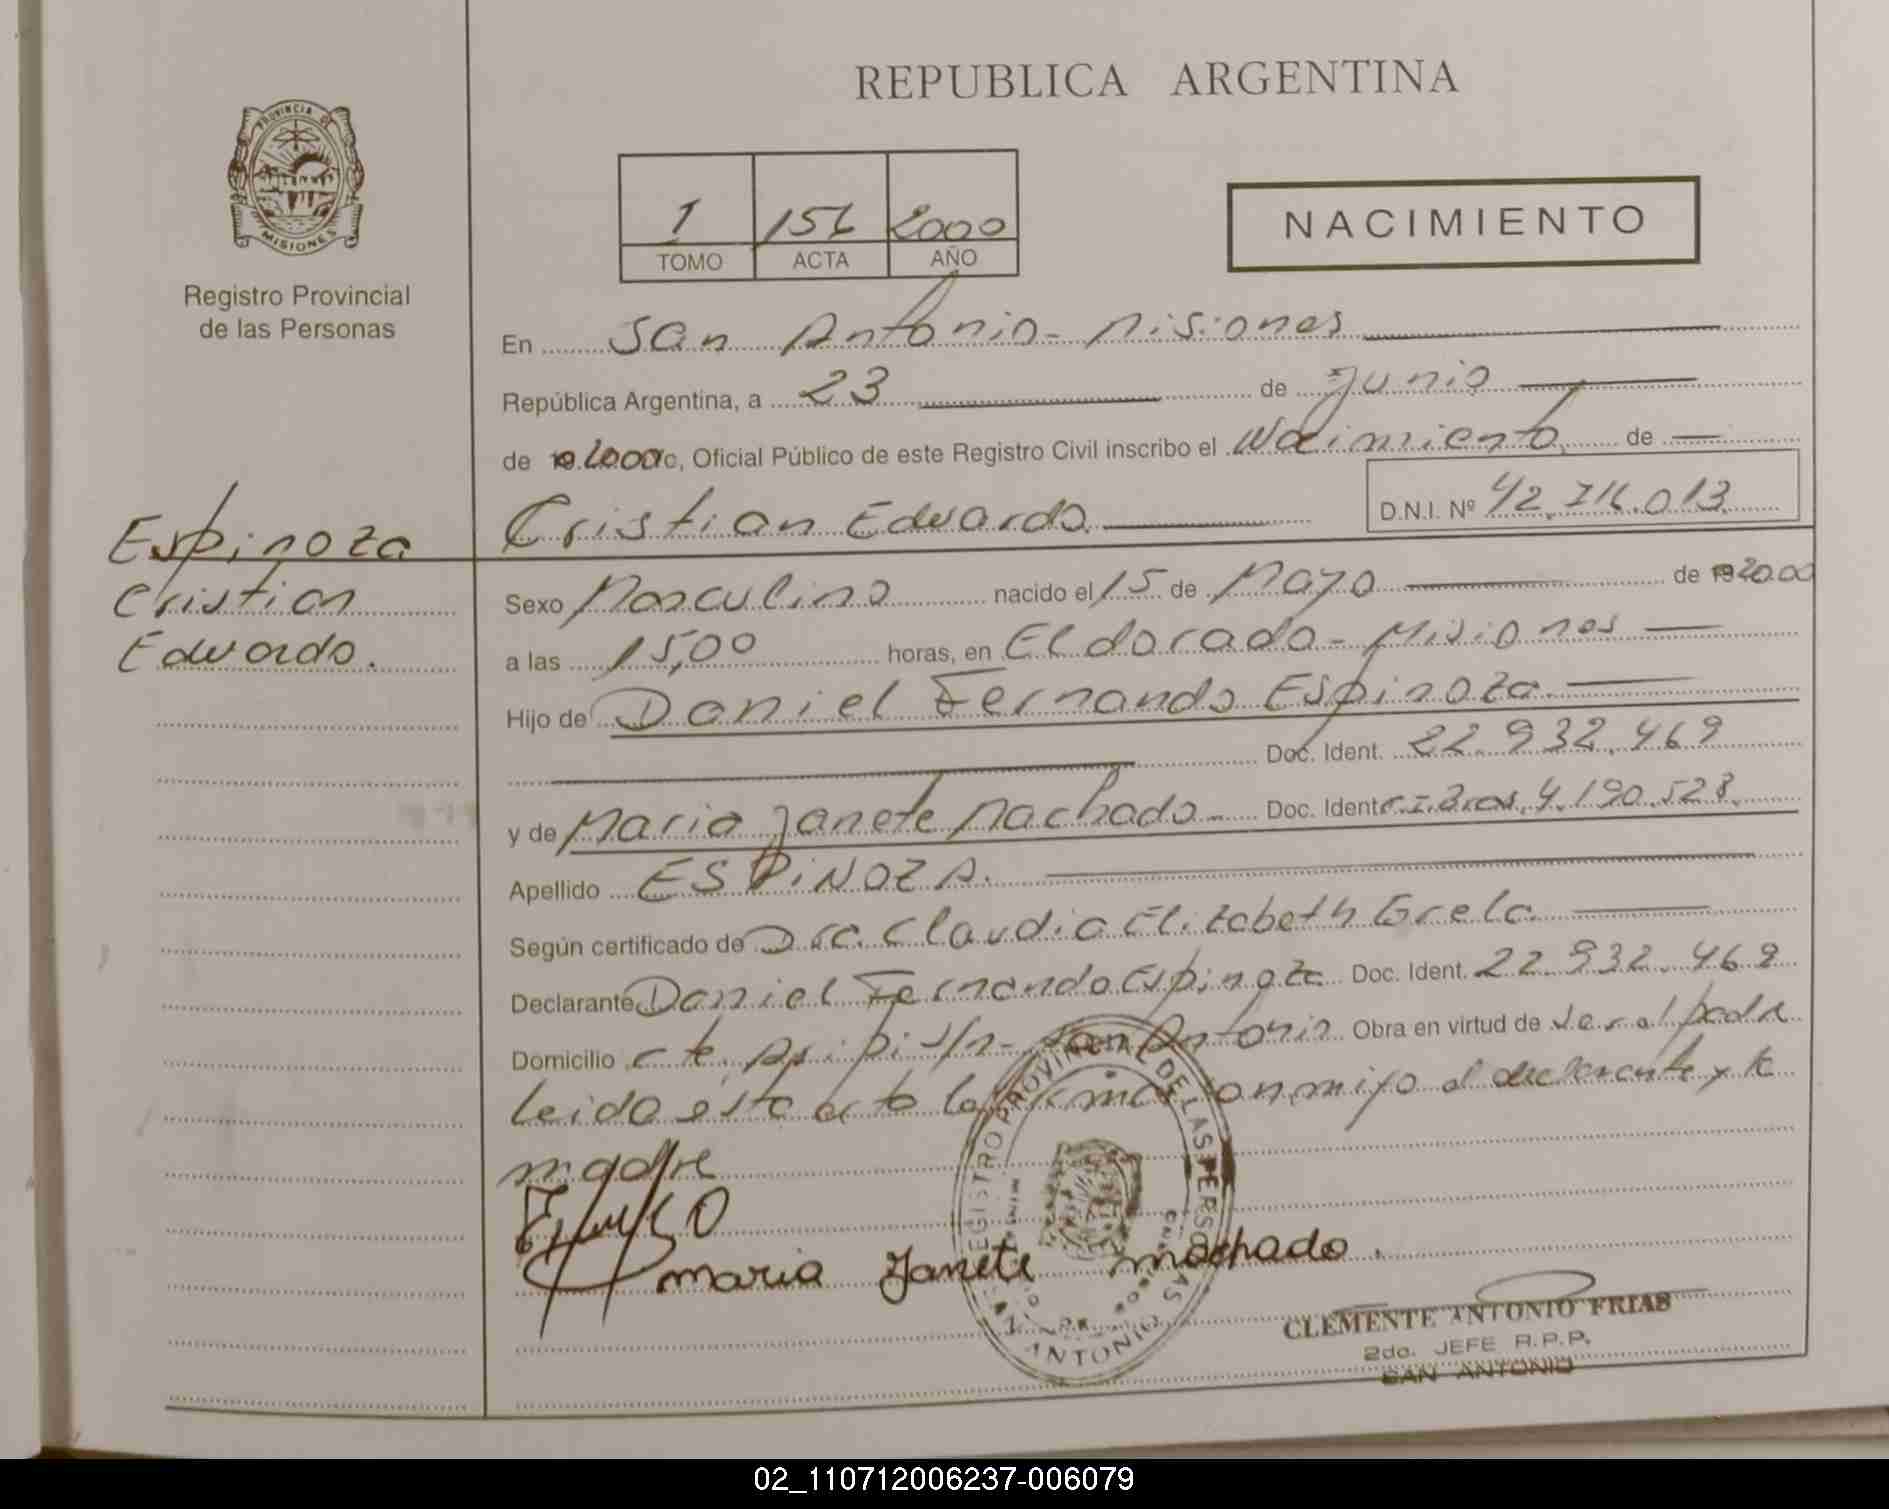 REPUBLICA ARGENTINA
PROVINCIA DE
MISIONES
Registro Provincial
de las Personas
1 156 2000
TOMO ACTA AÑO
NACIMIENTO
En San Antonio - Misiones
República Argentina, a 23 de Junio
de 2000, Oficial Público de este Registro Civil inscribo el Nacimiento de
Cristian Eduardo. D.N.I. Nº 42.716.013
Espinoza
Cristian
Eduardo.
Sexo Masculino nacido el 15 de Mayo de 2000
a las 15,00 horas, en Eldorado - Misiones
Hijo de Daniel Fernando Espinoza
Doc. Ident. 22.932.469
y de Maria Janete Machado Doc. Ident. C.I. Bras. 4.190.528.
Apellido ESPINOZA.
Según certificado de Dra. Claudia Elizabeth Grela
Declarante Daniel Fernando Espinoza Doc. Ident. 22.932.469
Domicilio s/n - San Antonio Obra en virtud de ser el padre
leida esta acta la firman conmigo el declarante y la
madre
maria Janete machado.
REGISTRO PROVINCIAL DE LAS PERSONAS
SAN ANTONIO
CLEMENTE ANTONIO FRIAS
2do. JEFE R.P.P.
SAN ANTONIO
02_110712006237-006079